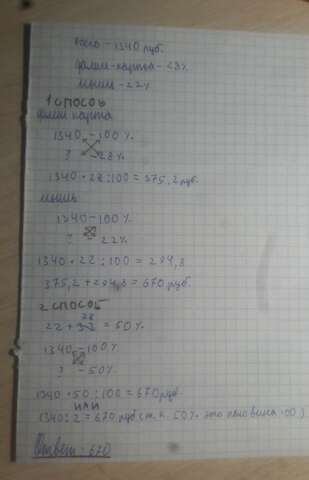 всего - 1340 руб.
флеш-карта - 28%
мышь - 22%
1 СПОСОБ
флеш карта
1340 - 100%
? - 28%
1340 • 28 : 100 = 375,2 руб.
мышь
1340 - 100%
? - 22%
1340 • 22 : 100 = 294,8
375,2 + 294,8 = 670 руб.
2 СПОСОБ
28
22 + = 50%
1340 - 100%
? - 50%
1340 • 50 : 100 = 670 руб
ИЛИ
1340 : 2 = 670 руб (т.к. 50% это половина 100)
Ответ: 670